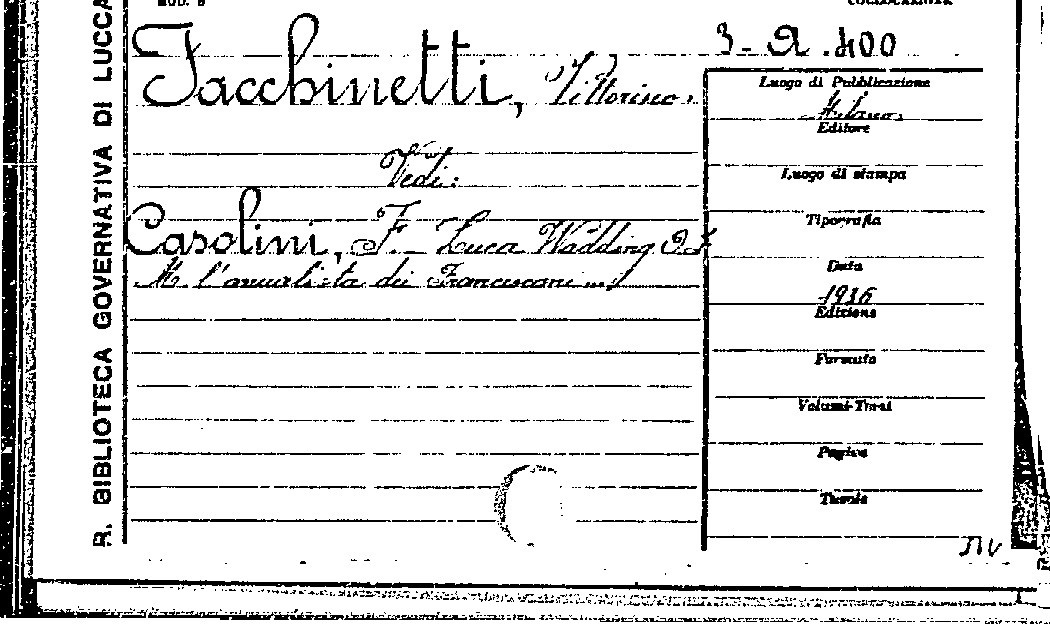 MOD. B
COLLOCAZIONE
R. BIBLIOTECA GOVERNATIVA DI LUCCA
Facchinetti, Vittorino.
Vedi:
Casolini, F. Luca Wadding O.F.
M. l'annalista dei Francescani ...)
Luogo di Pubblicazione
Milano.
Editore
Luogo di stampa
Tipografia
Data
1936
Edizione
Formato
Volumi-Tomi
Pagine
Tavole